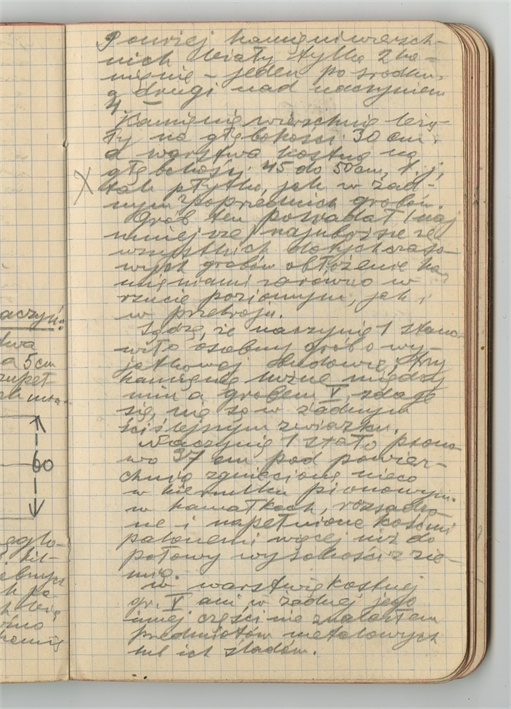 Poniżej kamieni wierzch-
nich leżały tylko 2 ka-
mienie – jeden po środku,
a drugi nad naczyniem
4. –
Kamienie wierzchnie leża-
ły na głębokości 30 cm,
a warstwa kostna na
głębokości 45 do 50 cm, t. j.
X tak płytko, jak w żad-
nym z poprzednich grobów.
Grób ten posiadał (naj
mniejsze) najuboższe ze
wszystkich dotychczaso-
wych grobów obłożenie ka
mieniami zarówno w
rzucie poziomym, jak i
w przekroju.
Sądzę, że naczynie 1 stano-
wiło osobny grób o wy-
jątkowej budowie, trzy
kamienie luźne między
nim a grobem V, zdaje
się, nie są w żadnym
ściślejszym związku.
Naczynie 1 stało piono-
wo 37 cm pod powierz-
chnią zgniecione nieco
w kierunku pionowym,
w kawałkach, rozsadzo-
ne i napełnione kośćmi
palonemi więcej niż do
połowy wysokości z zie-
mią.
W warstwie kostnej
gr. V ani w żadnej jego
innej części nie znalazłem
przedmiotów metalowych
lub ich śladów.
aczyń:
twa
a 5 cm
60